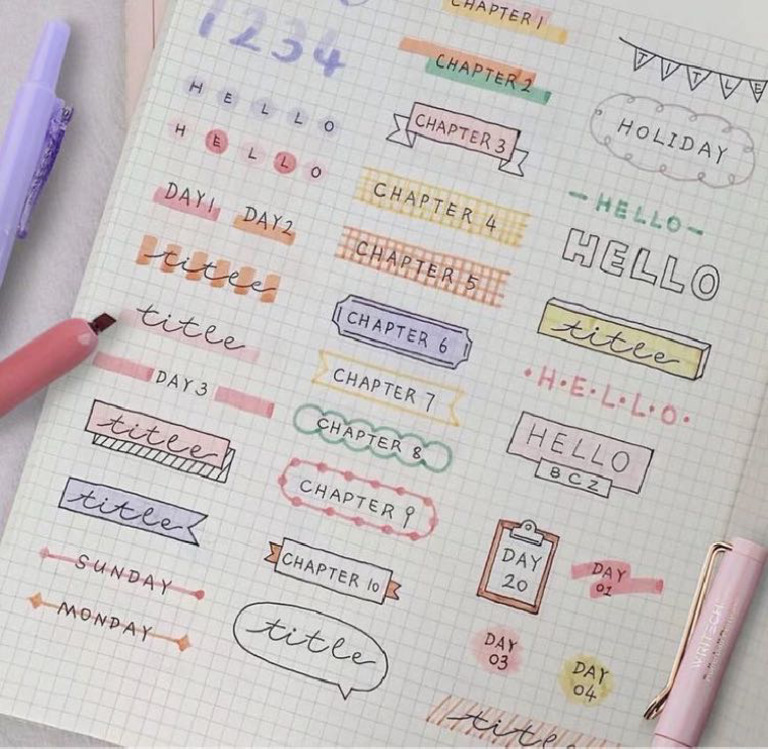 1234
HELLO
HELLO
DAY1 DAY2
title
title
DAY 3
title
title
SUNDAY
MONDAY
CHAPTER 1
CHAPTER 2
CHAPTER 3
CHAPTER 4
CHAPTER 5
CHAPTER 6
CHAPTER 7
CHAPTER 8
CHAPTER 9
CHAPTER 10
title
TITLE
HOLIDAY
-HELLO-
HELLO
title
·H·E·L·L·O·
HELLO
BCZ
DAY
20
DAY
01
DAY
03
DAY
04
title
WRITECH